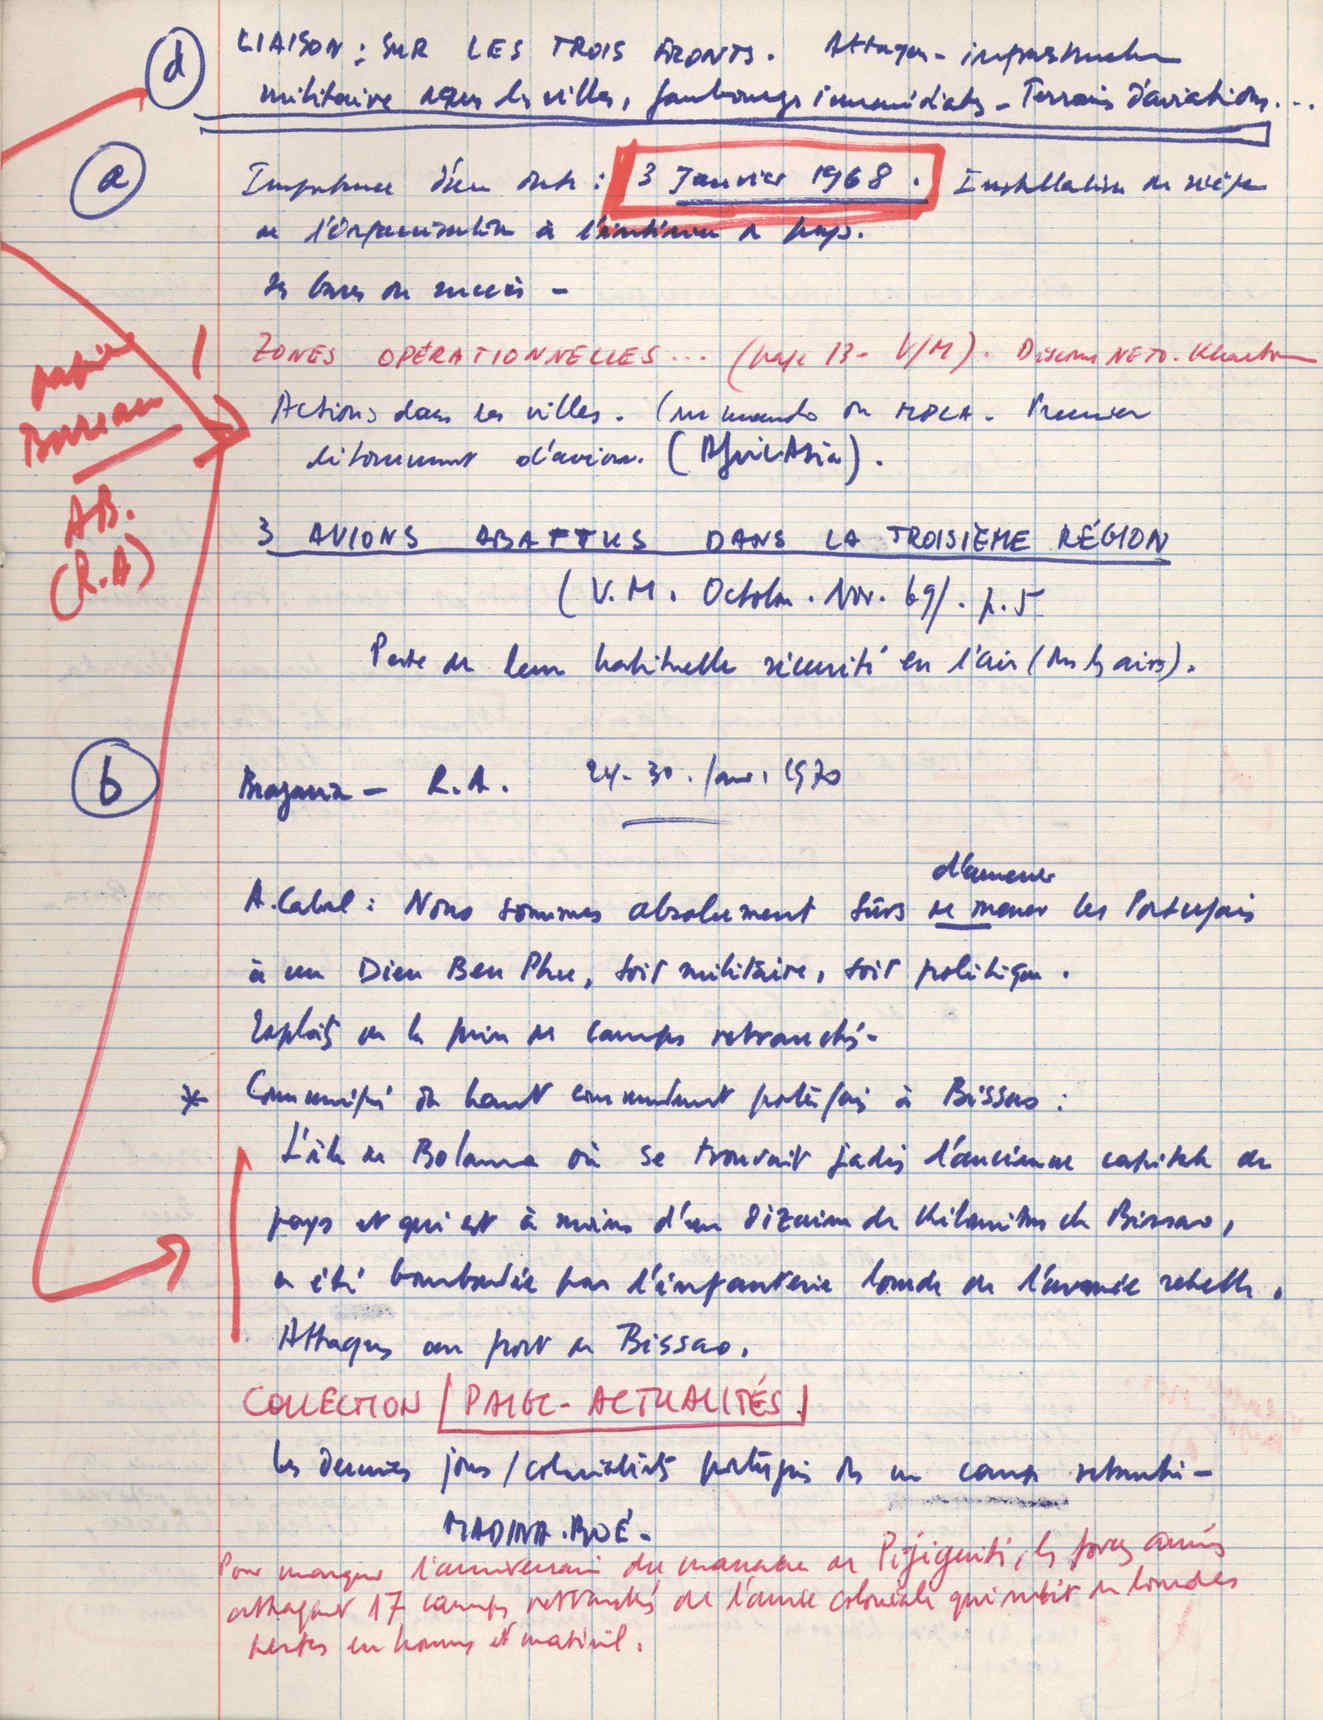 d LIAISON : SUR LES TROIS FRONTS. Attaques - infrastructure
militaire dans les villes, faubourgs immédiats - Terrains d'aviations...
a Importance d'une date : 3 Janvier 1968. Installation du siège
de l'organisation à l'intérieur du pays.
Les bases du succès -
ZONES OPÉRATIONNELLES... (page 13 - V/M). Discours NETO. Khartoum
Actions dans les villes. Commando du MPLA. Premier
détournement d'avion. (AfricAsia).
Bureau
AB.
(R.A)
3 AVIONS ABATTUS DANS LA TROISIÈME RÉGION
(V.M. Octobre. Nov. 69/. p.5
Perte de leur habituelle sécurité en l'air (des airs).
b Braganza - R.A. 24-30. Janv. 1970
d'amener
A. Cabral : Nous sommes absolument sûrs de mener les Portugais
à un Dien Ben Phu, soit militaire, soit politique.
Exploits de la prise de camps retranchés -
* Communiqué du haut commandement portugais à Bissao :
L'île de Bolama où se trouvait jadis l'ancienne capitale du
pays et qui est à moins d'une dizaine de kilomètres de Bissao,
a été bombardée par l'infanterie lourde de l'armée rebelle.
Attaques au port de Bissao.
COLLECTION / PAIGC - ACTUALITÉS /
Les derniers jours / colonialistes portugais ds un camp retranché -
MADINA.BOÉ -
Pour marquer l'anniversaire du massacre de Pijiguiti, les forces armées
attaquent 17 camps retranchés de l'armée coloniale qui subit de lourdes
pertes en hommes et matériel.